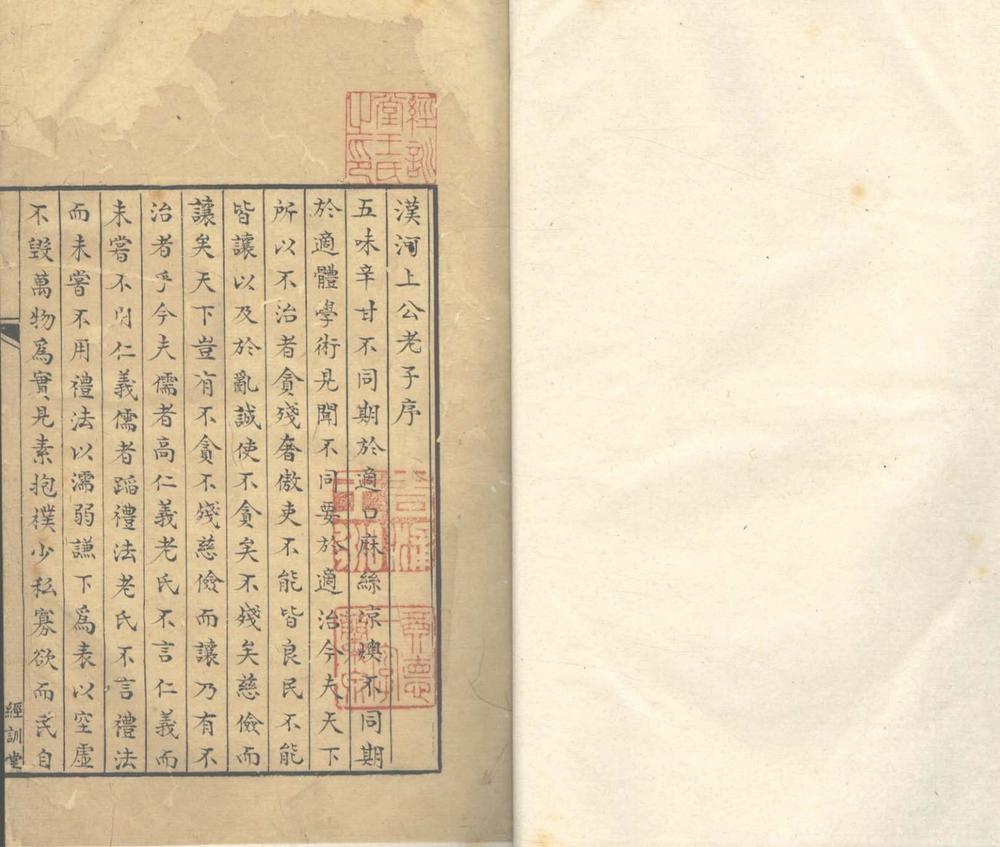 漢河上公老子序
五味辛甘不同期於適口麻絲涼燠不同期
於適體學術見聞不同要於適治今夫天下
所以不治者貪殘奢傲吏不能皆良民不能
皆讓以及於亂誠使不貪矣不殘矣慈儉而
讓矣天下豈有不貪不殘慈儉而讓乃有不
治者乎今夫儒者高仁義老氏不言仁義而
未嘗不用仁義儒者蹈禮法老氏不言禮法
而未嘗不用禮法以濡弱謙下為表以空虛
不毀萬物為實見素抱樸少私寡欲而民自
經訓堂
經訓堂王氏之印